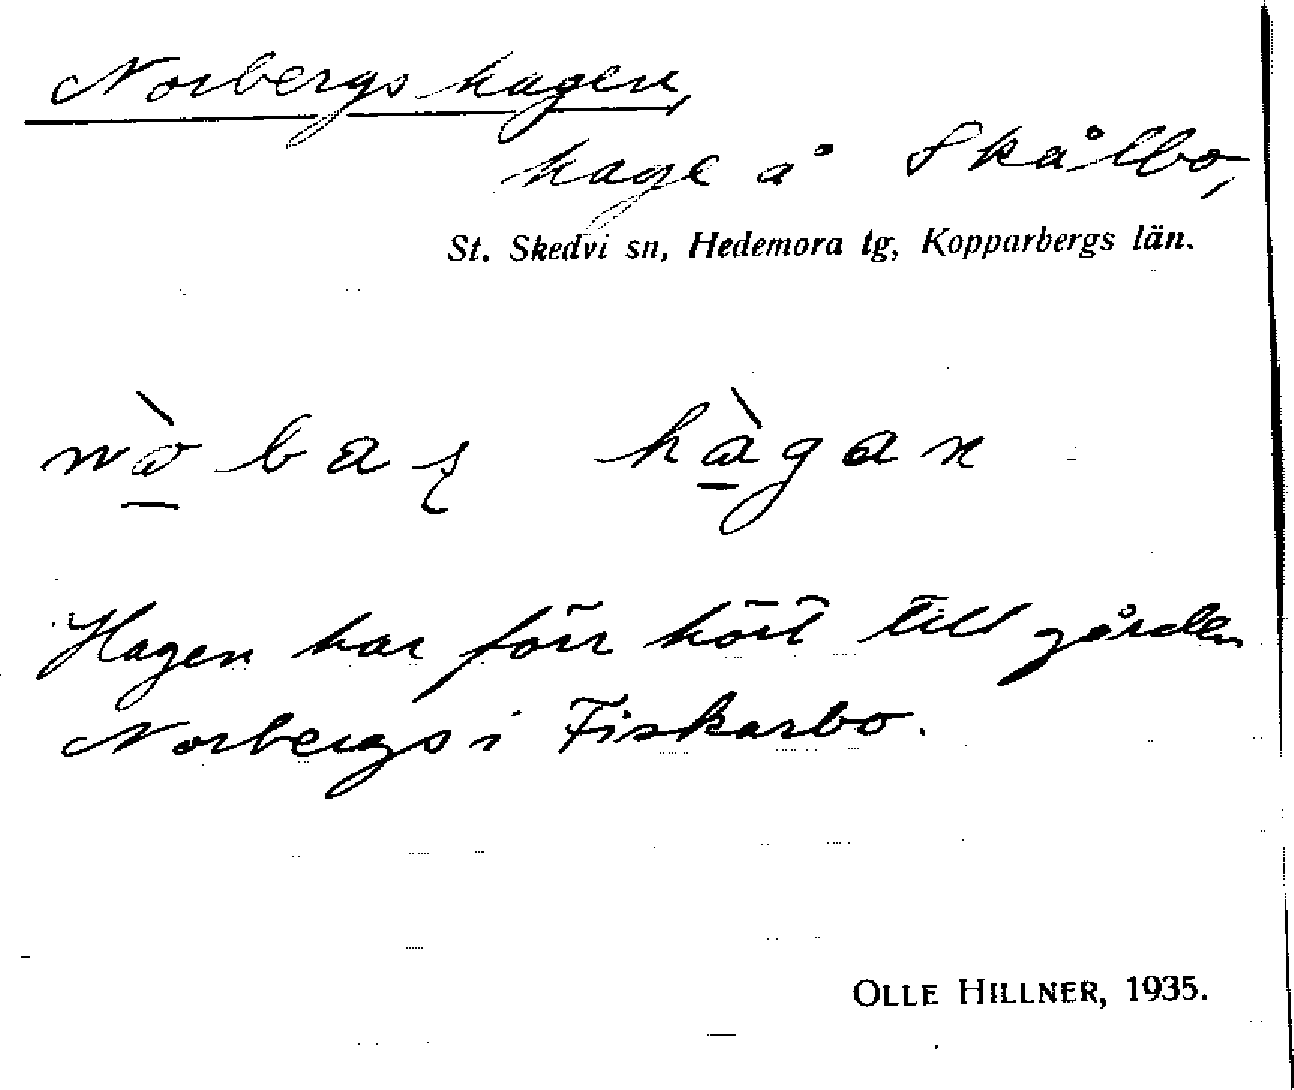 Norbergshagen,
hage å Skålbo,
St. Skedvi sn, Hedemora tg, Kopparbergs län.
nò̱baş hà̱gan
Hagen har förr hört till gården
Norbergs i Fiskarbo.
OLLE HILLNER, 1935.